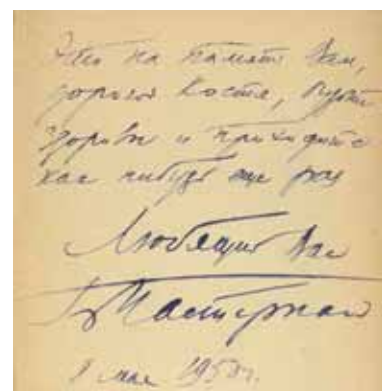 Это на память Вам,
дорогой Костя, Будьте
здоровы и приходите
как нибудь еще раз
Любящий Вас
БПастернак
мая